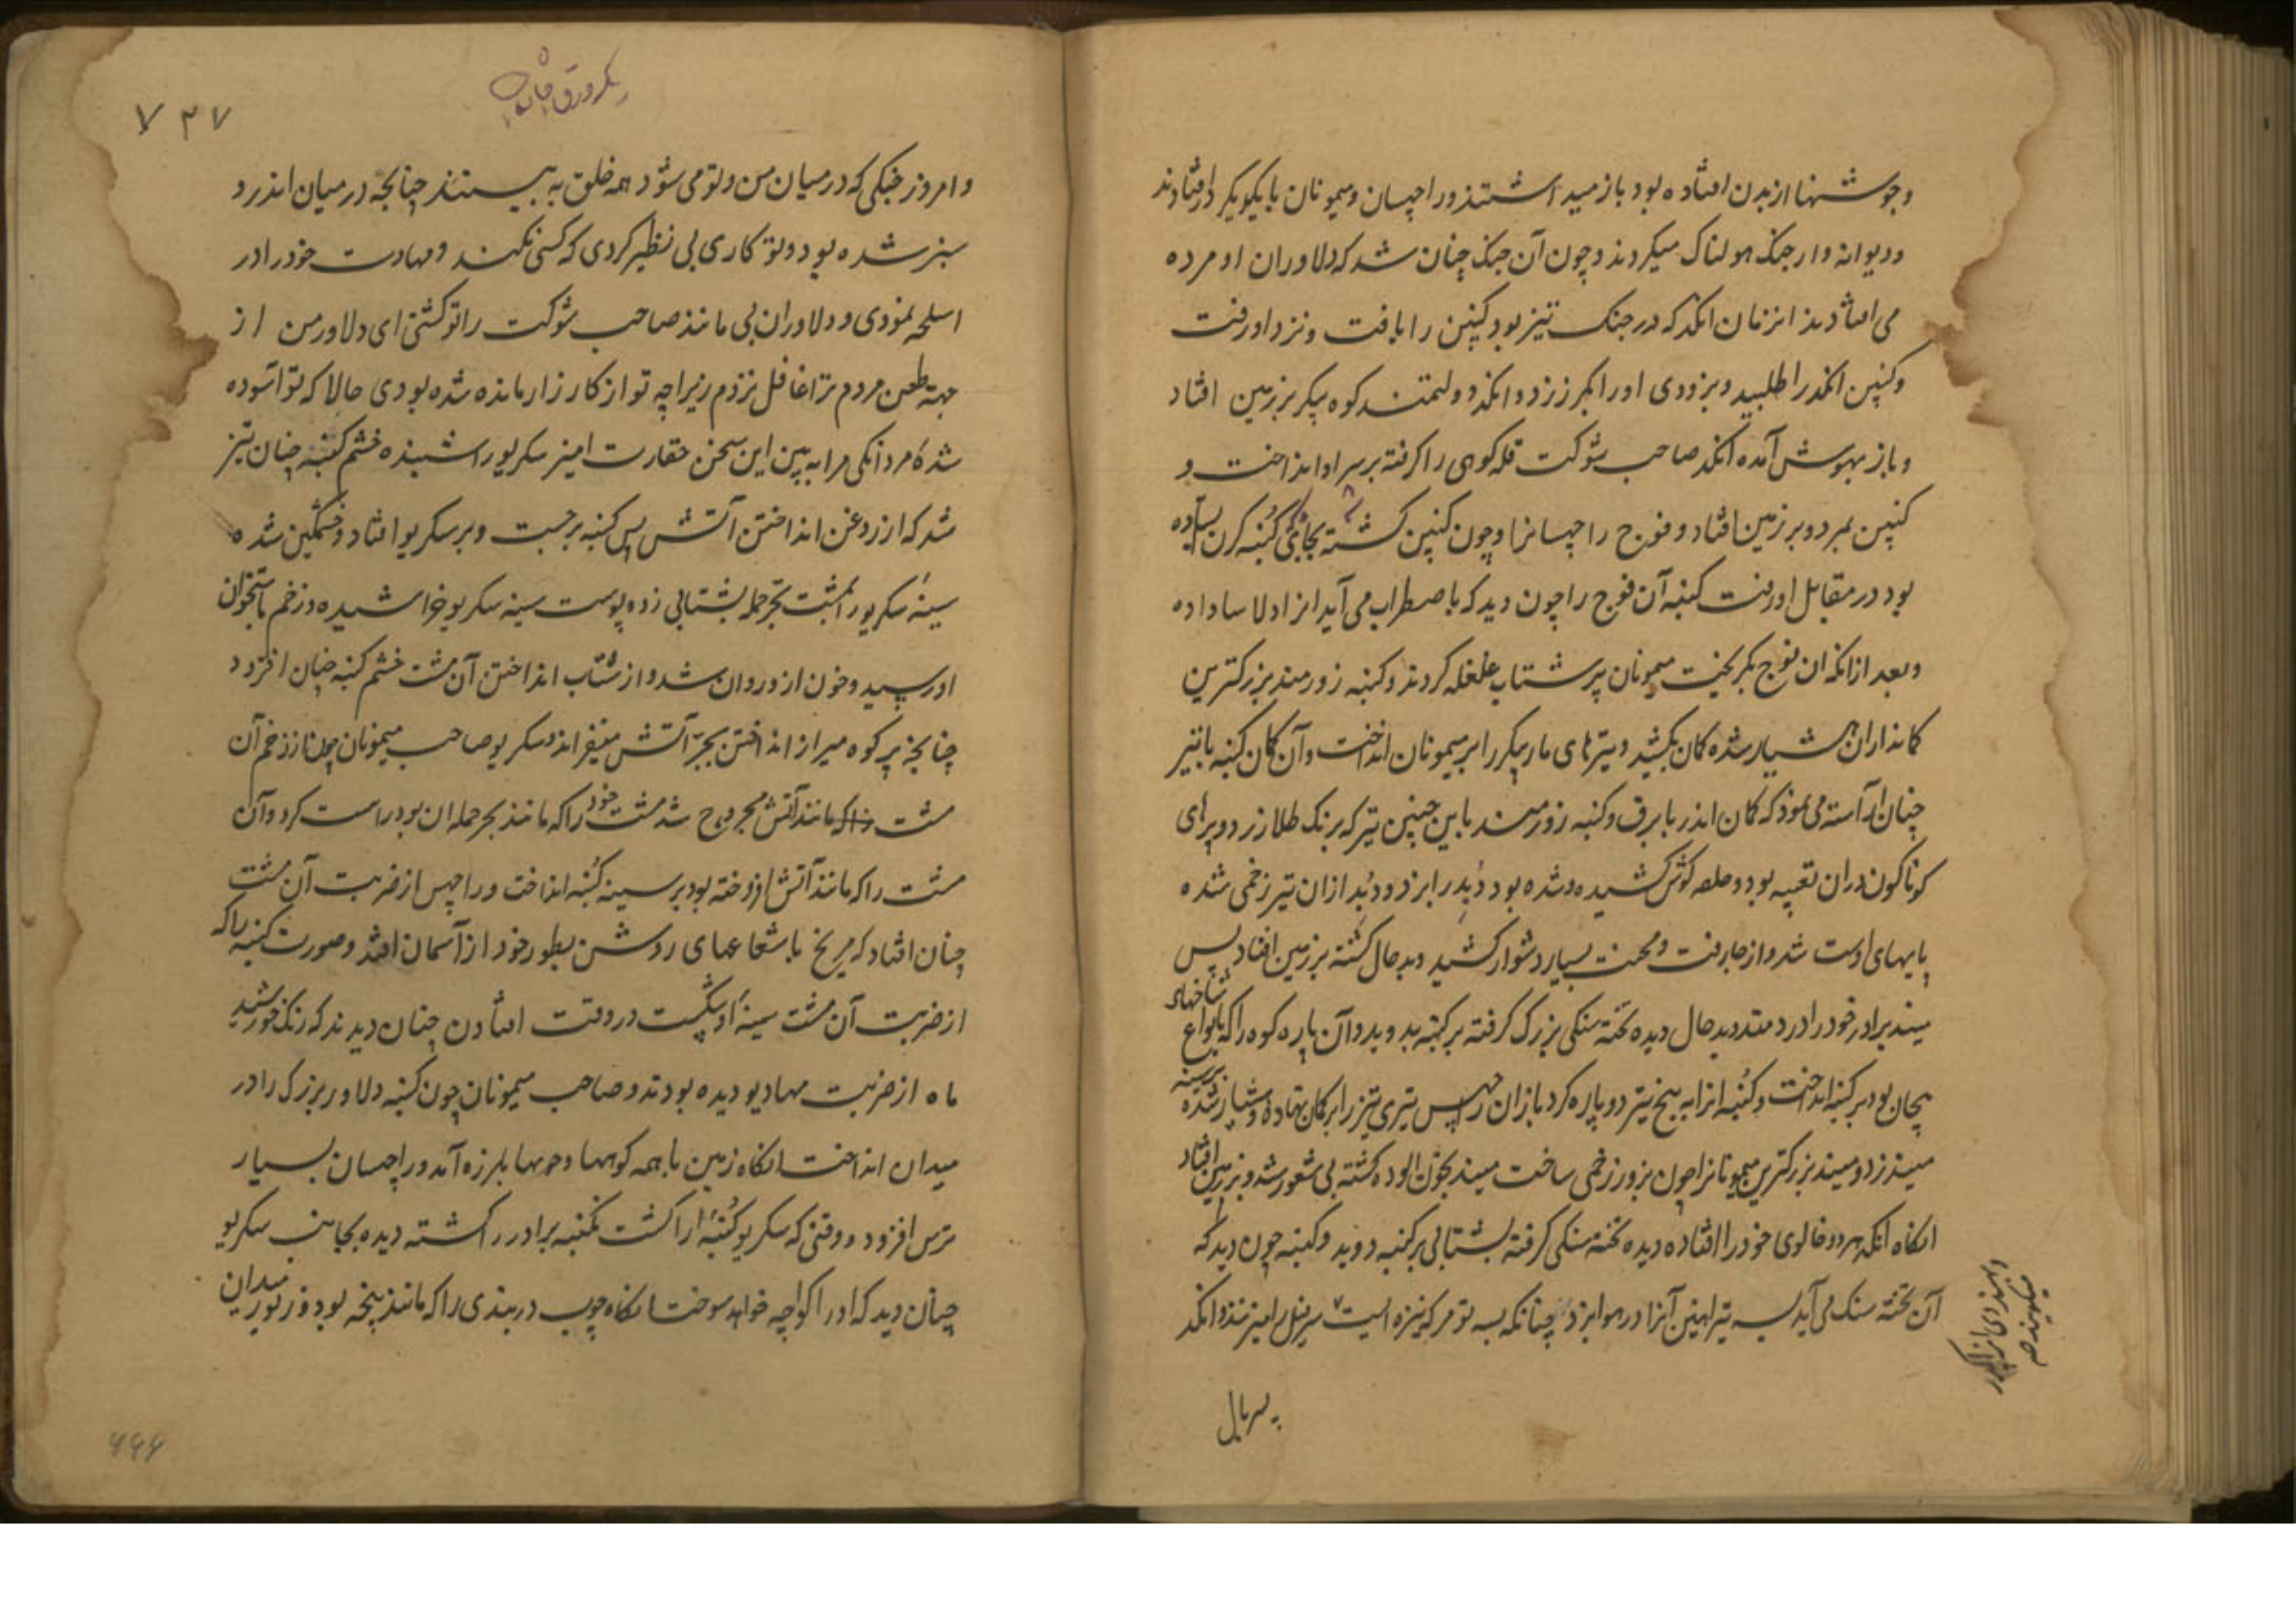 وجوشنها از بدن افتاده بود باز میداشتند و راچهسان و میمونان با یکویکر در افتادند
و دیوانه وار جنگ هولناک میکردند و چون آن جنک چنان شد که دلاوران او مرده
می افتادند انزمان انکد که در جنک تیز بود کنپن را یافت و نزد او رفت
و کنپن انکد را طلبید و بزودی او را بکرز زد و انکد دولتمند کوه پیکر بر زمین افتاد
و باز بهوش آمده انکد صاحب شوکت قله کوهی را کرفته بر سر او انداخت و
کنپن بمرد و بر زمین افتاد و فوج راچهسانرا و چون کنپن کشته بجای کنبه کرن ستاده
بود در مقابل او رفت کنبه آن فوج را چون دید که باضطراب می آید انرا دلاسا داده
و بعد ازانکه ان فوج بکریخت میمونان پر شتاب غلغله کردند و کنبه زورمند بزرکترین
کمانداران هشیار شده کمان بکشید و تیرهای مار پیکر را بر میمونان انداخت و آن کمان کنبه با تیر
چنان آراسته می نمود که کمان اندر با برق و کنبه زورمند باین چنین تیر که برنک طلا زرد و پرهای
کوناکون دران تعبیه بود و حلقه کوش کشیده شده بود دبد را بزد و دبد ازان تیر زخمی شده
پایهای او ست شد و از جا رفت و محنت بسیار دشوار کشید و بدحال کشته بر زمین افتاد پس
میند برادر خود را دردمند و بدحال دیده تخته سنکی بزرک کرفته بر کنبه بدوید و آن پاره کوه را که بانواع شاخهای
پیچان بود بر کنبه انداخت و کنبه انرا به پنج تیر دو پاره کرد باز ان راچهس تیری تیز را بر کمان نهاده و هشیار شده بر سینه
میند زد و میند بزرکترین میمونانرا چون بزور زخمی ساخت میند بخون الوده کشته بی شعور شد و بر زمین افتاد
انکاه انکد هر دو خالوی خود را افتاده دیده تخته سنکی کرفته بشتابی بر کنبه دوید و کنبه چون دید که
آن تخته سنک می آید بسه تیر اهنین آنرا در هوا بزد چنانکه بسه تومر که نیزه ایست سر پنل را میزنند و انکد
پسر بال
یکورق
۷۳۷
و امروز جنکی که در میان من و تو می شود همه خلق به بینند چنانچه در میان اندر و
سنبر شده بود و تو کاری بی نظیر کردی که کسی نکند و مهارت خود را در
اسلحه نمودی و دلاوران بی مانند صاحب شوکت را تو کشتی ای دلاور من از
جهة طعن مردم ترا غافل نزدم زیرا چه تو از کارزار مانده شده بودی حالا که تو آسوده
شدهٔ مردانکی مرا به بین این سخن حقارت امیز سکریو را شنیده خشم کنبه چنان تیز
شد که از روغن انداختن آتش پس کنبه برجست و بر سکریو افتاد و خشمکین شده
سینهٔ سکریو را بمشت بجرحمله بشتابی زد و پوست سینه سکریو خراشیده و زخم باستخوان
او رسید و خون ازو روان شد و از شتاب انداختن آن مشت خشم کنبه چنان افزود
چنانچه بر کوه میر از انداختن بجر آتش میفزاید و سکریو صاحب میمونان چون از زخم آن
مشت که مانند آتش مجروح شد مشت خود را که مانند بجر حمله ان بود راست کرد و آن
مشت را که مانند آتش افروخته بود بر سینه کنبه انداخت و راچهس از ضربت آن مشت
چنان افتاد که مریخ با شعاعهای روشن بطور خود از آسمان افتد و صورت کنبه را که
از ضربت آن مشت سینهٔ او بشکست در وقت افتادن چنان دیدند که رنک خورشید
ماه از ضربت مهادیو دیده بودند و صاحب میمونان چون کنبه دلاور بزرک را در
میدان انداخت انکاه زمین با همه کوهها و بلرزه آمد و راچهسان بسیار
ترس افزود و وقتی که سکریو کنبه را کشت نکنبه برادر را کشته دیده بجانب سکریو
چنان دید که او را کواچه خواهد سوخت انکاه چوب دربندی را که مانند پنجه بود و زیور میدان
۶۶۶